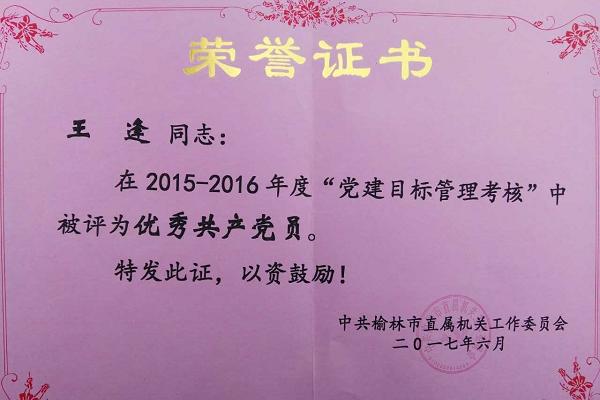 荣誉证书
王 逢 同志：
在2015-2016年度“党建目标管理考核”中
被评为优秀共产党员。
特发此证，以资鼓励！
中共榆林市直属机关工作委员会
二〇一七年六月